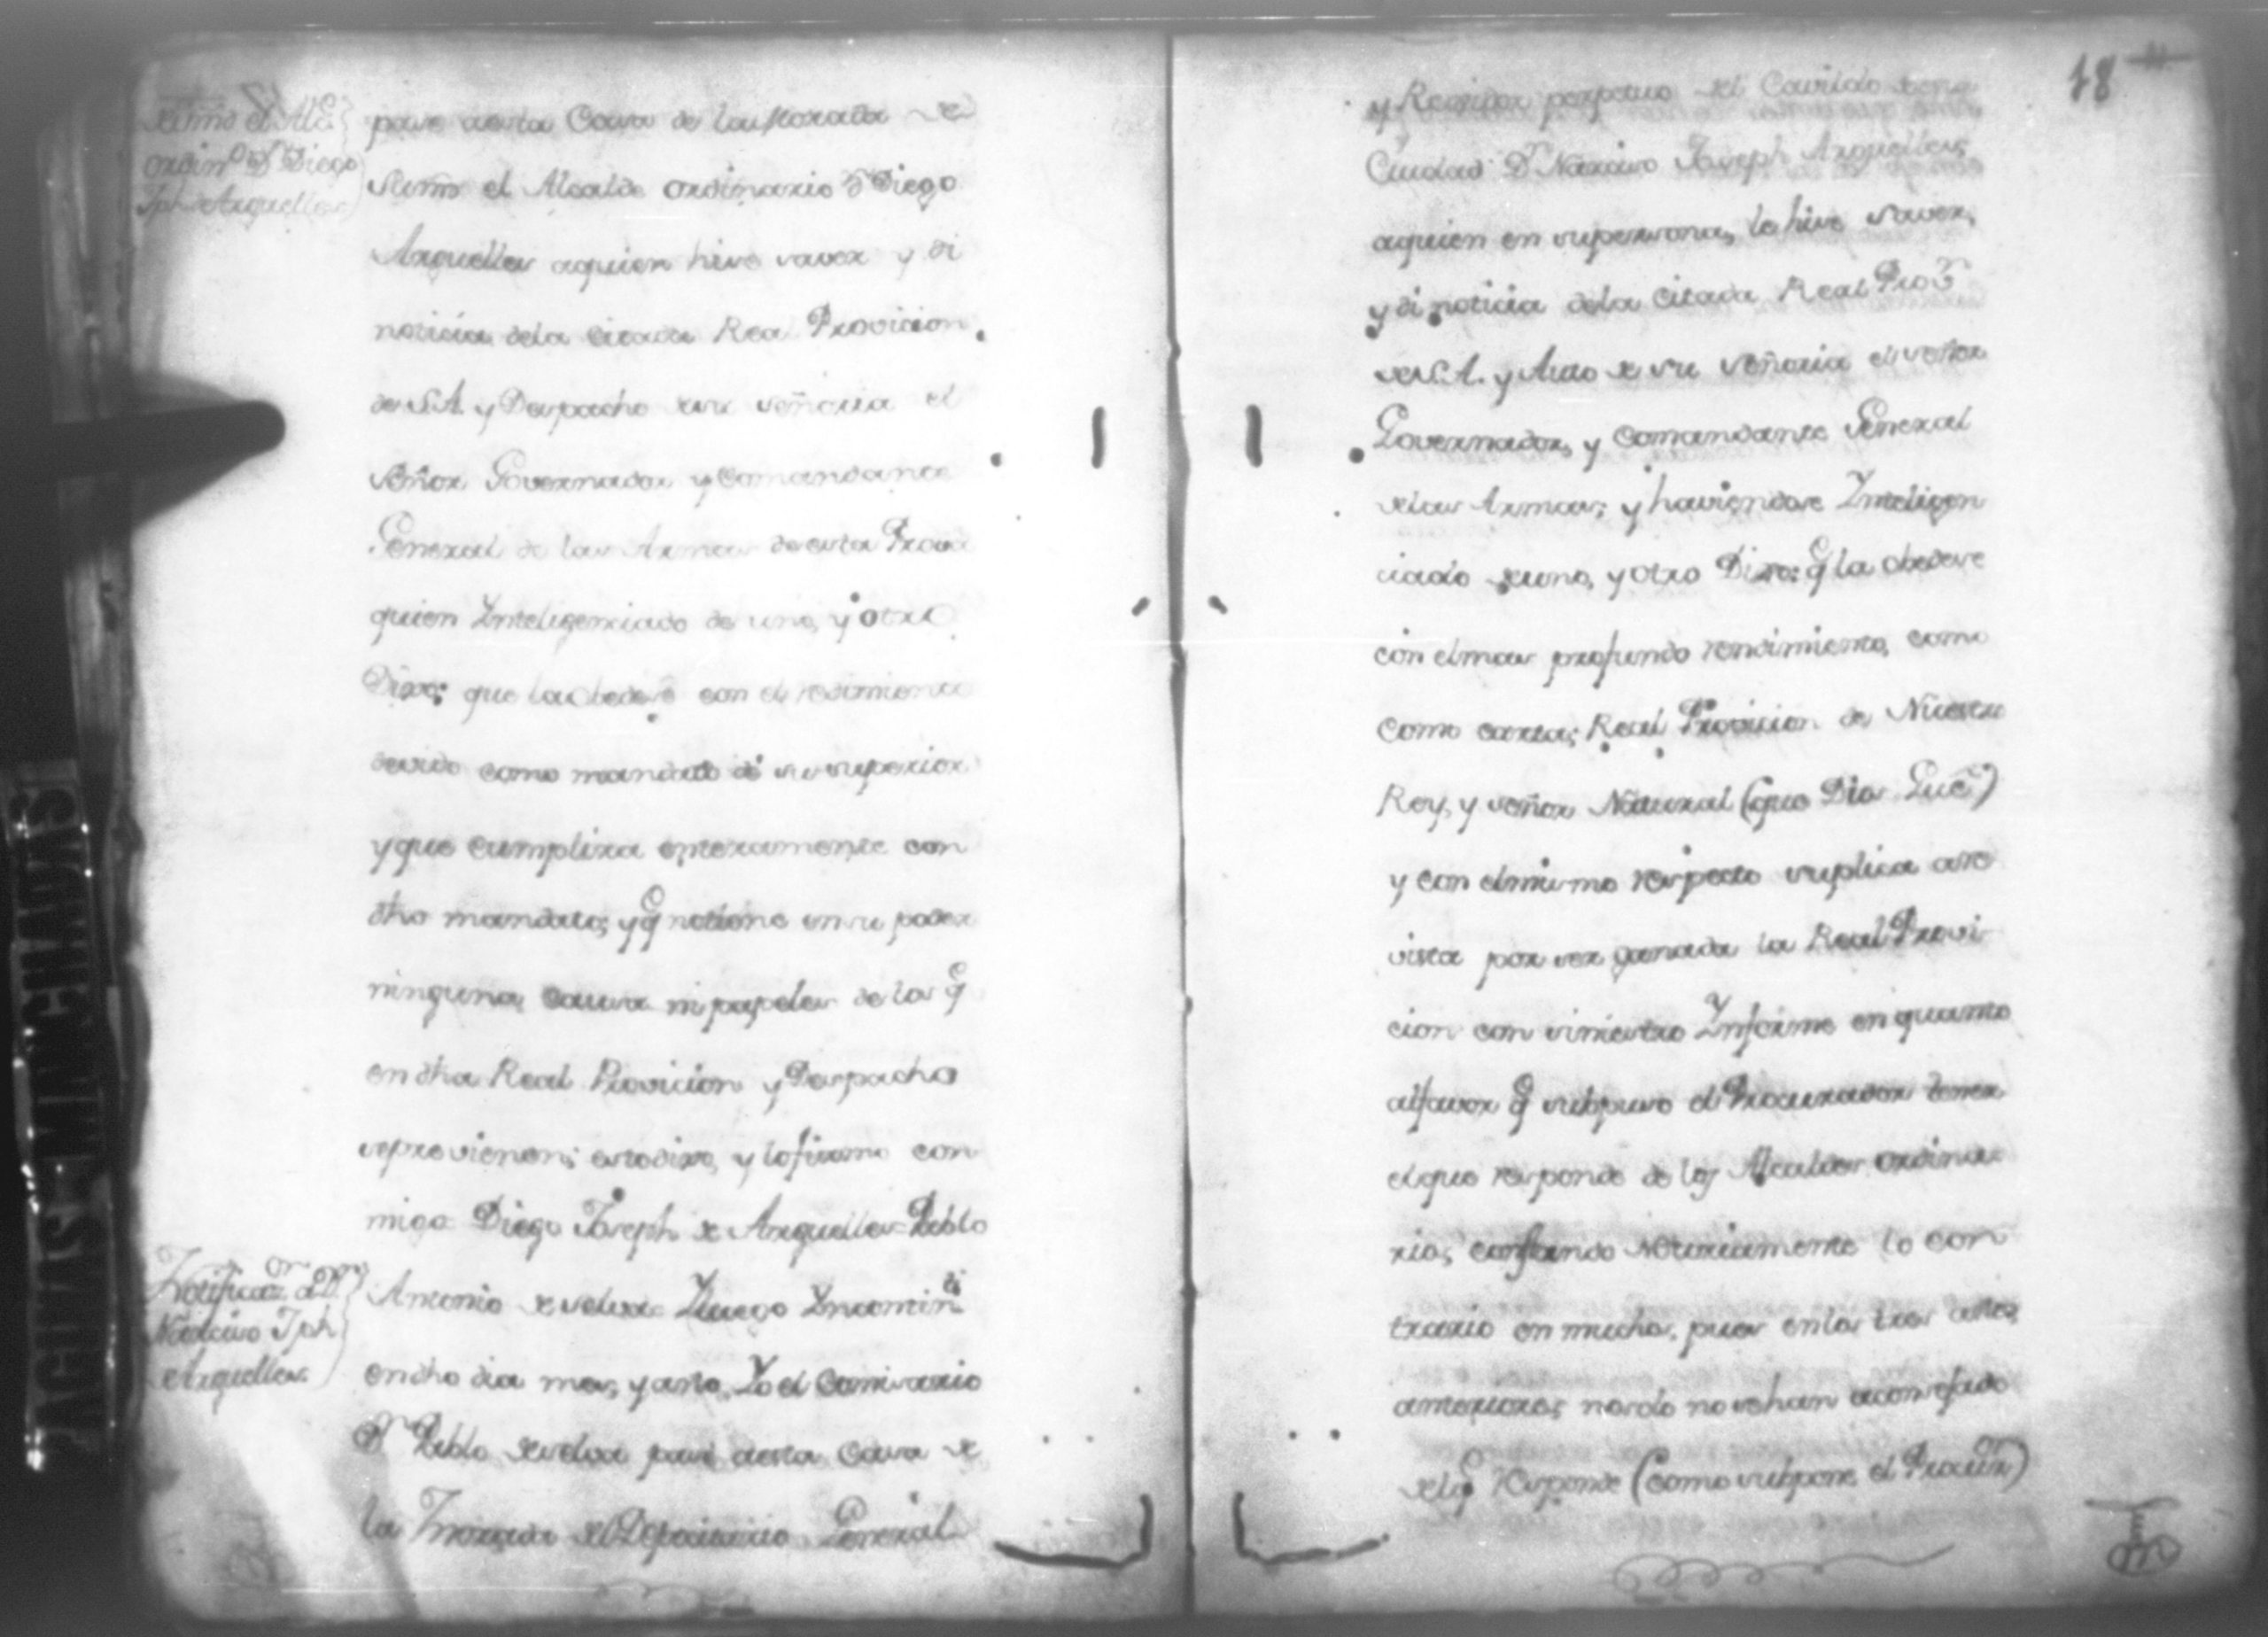 de su md el Alc.
ordin.º Dn Diego
Jph Arguelles
pase a esta Casa de la morada de
su md el Alcalde ordinario Dn Diego
Arguelles aquien hise saver y di
noticia dela citada Rea Provicion
de S.A. y Despacho de su señoria el
señor Governador y Comandante
General de las Armas de esta Prova
quien Ynteligenciado de uno, y otro
Dixo: que la obedese con el redimiento
devido como mandato de su superior
y que cumplira enteramente con
dho mandato; y q notiene en su poder
ninguna causa ni papeles de los q
en dha Real Provicion y Despacho
seprevienen; esto dixo, y lo firmo con
migo Diego Joseph de Arguelles = Pablo
Notificaon a Dn
Narciso Jph
Arguelles.
Antonio de selva = Yluego Yncontinti
en dho dia mes, y año, Yo el Comisario
Dn Pablo deselva pase aesta Casa de
la Morada del Depocitario General
18
y Rexidor perpetuo del Cavildo desta
Ciudad Dn Narciso Joseph Arguelles
aquien en supersona, le hise saver,
y di noticia dela citada Real Proon
de S.A. y Auto de su señoria el señor
Governador, y Comandante General
delas Armas; y haviendose Ynteligen
ciado deuno, y otro Dixo: q la obedese
con elmas profundo rendimiento, como
como carta; Real Provicion de Nuestro
Rey, y señor Natural (que Dios Gue)
y con elmismo respecto suplica ase
vista por ser ganada la Real Provi-
cion con siniestro Ynforme en quanto
alfavor q subpuso el Procurador tener
elque responde de los Alcaldes ordina-
rios, constando notoriamente lo con
trario en mucho, pues enlos tres años
anteriores; nosolo no sehan aconsejado
delq responde (Como subpone el Procuor)